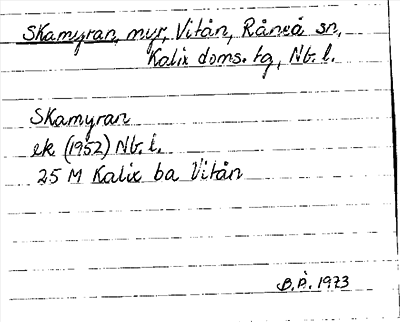 Skamyran, myr, Vitån, Råneå sn,
Kalix doms. tg, Nb. l.
Skamyran
ek (1952) Nb. l.
25 M Kalix ba Vitån
B.Å. 1973